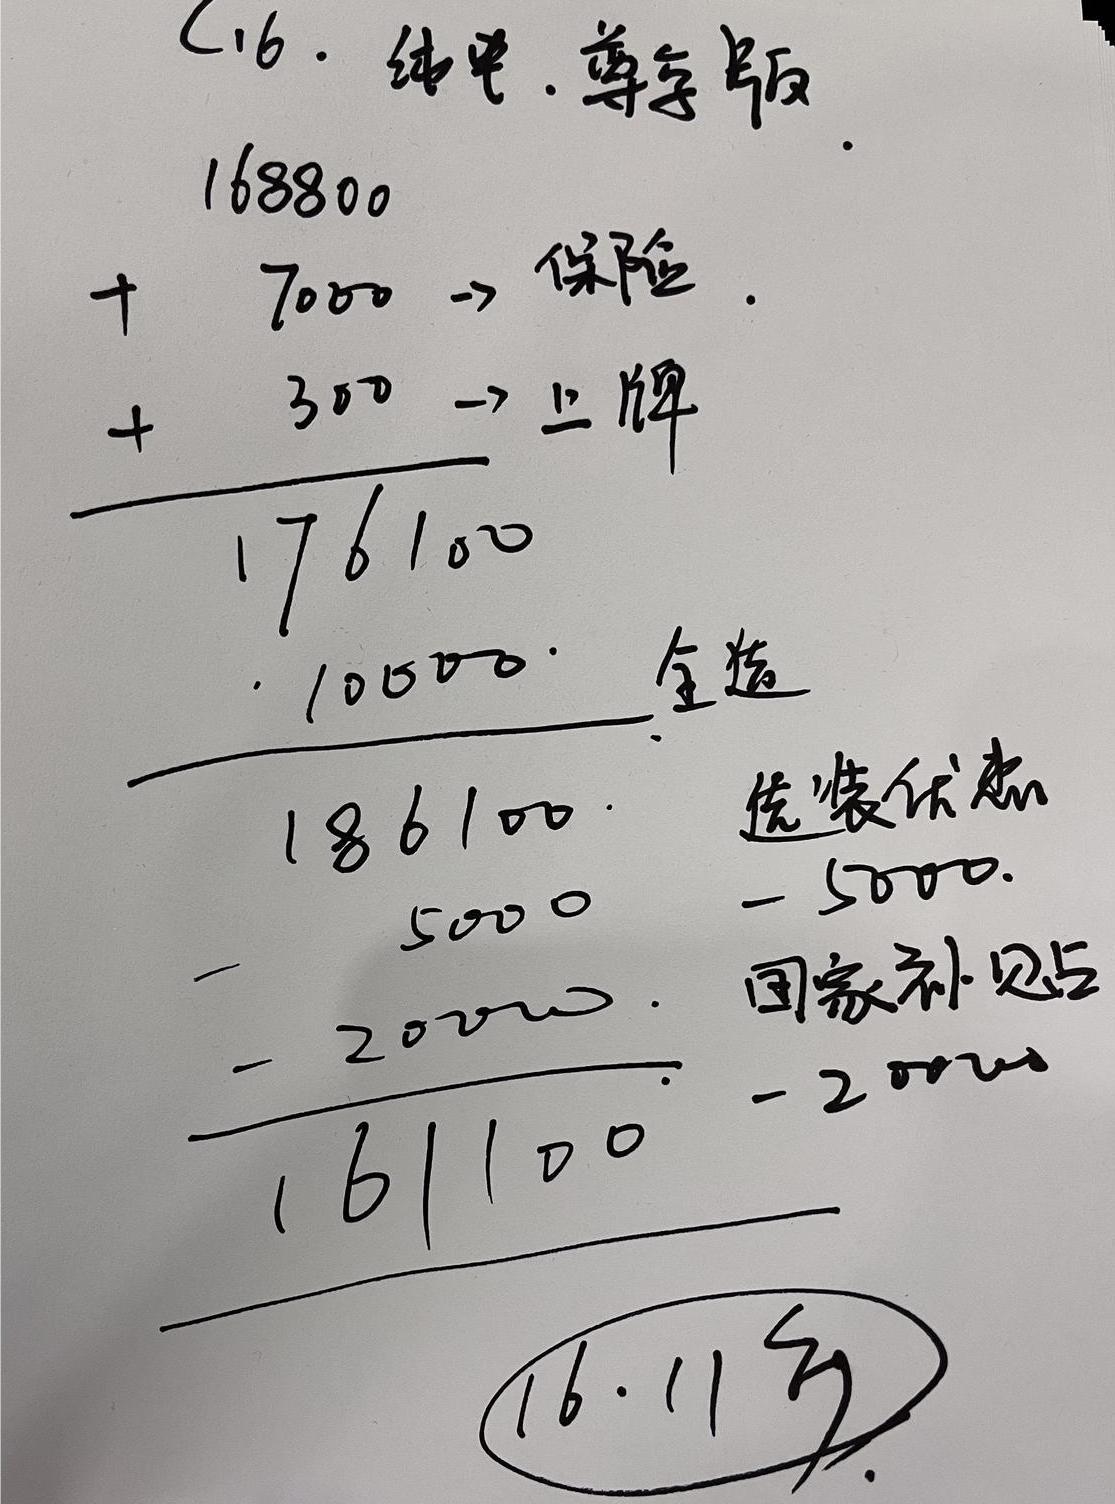 C16. 纯电. 尊享版.
168800
+ 7000 → 保险.
+ 300 → 上牌
176100
10000. 全选
186100. 选装优惠
- 5000 - 5000.
国家补贴
- 20000. - 20000
161100
16.11万.